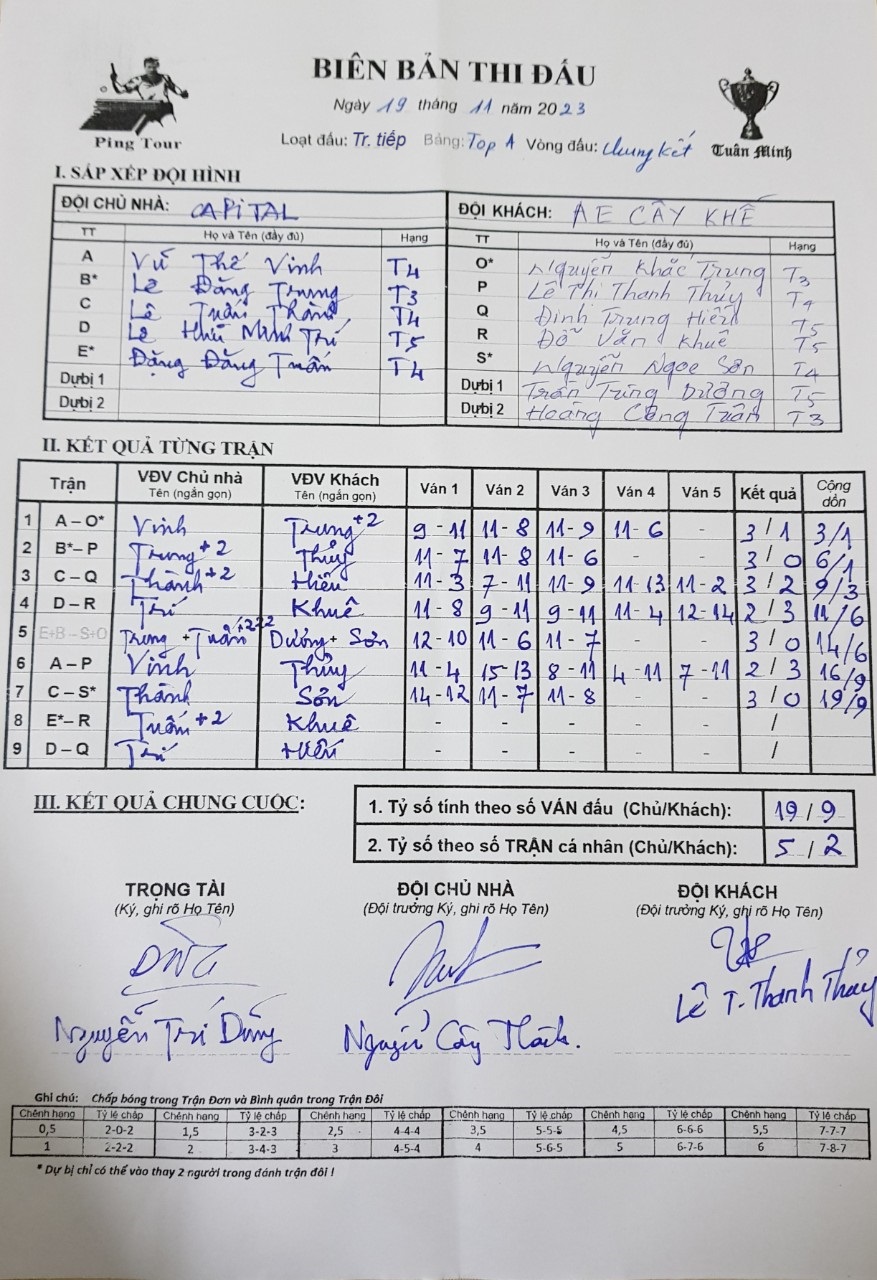 BIÊN BẢN THI ĐẤU
Ngày 19 tháng 11 năm 2023
Ping Tour
Loạt đấu: Tr. tiếp Bảng: Top A Vòng đấu: chung kết
Tuấn Minh
I. SẮP XẾP ĐỘI HÌNH
ĐỘI CHỦ NHÀ: CAPITAL ĐỘI KHÁCH: AE CÂY KHẾ
TT Họ và Tên (đầy đủ) Hạng TT Họ và Tên (đầy đủ) Hạng
A Vũ Thế Vinh T4 O* Nguyễn Khắc Trung T3
B* Lê Đăng Trung T3 P Lê Thị Thanh Thủy T4
C Lê Tuấn Thành T4 Q Đinh Trung Hiếu T5
D Lê Hữu Minh Trí T5 R Đỗ Văn Khuê T5
E* Đặng Đăng Tuấn T4 S* Nguyễn Ngọc Sơn T4
Dựbị 1 Dựbị 1 Trần Tùng Dương T5
Dựbị 2 Dựbị 2 Hoàng Công Tuân T3
II. KẾT QUẢ TỪNG TRẬN
Trận VĐV Chủ nhà Tên (ngắn gọn) VĐV Khách Tên (ngắn gọn) Ván 1 Ván 2 Ván 3 Ván 4 Ván 5 Kết quả Cộng dồn
1 A – O* Vinh Trung+2 9 - 11 11 - 8 11 - 9 11 - 6 - 3 / 1 3/1
2 B*– P Trung+2 Thủy 11 - 7 11 - 8 11 - 6 - - 3 / 0 6/1
3 C – Q Thành+2 Hiếu 11 - 3 7 - 11 11 - 9 11 - 13 11 - 2 3 / 2 9/3
4 D – R Trí Khuê 11 - 8 9 - 11 9 - 11 11 - 4 12 - 14 2 / 3 11/6
5 E+B – S+O Trung + Tuấn+222 Dương + Sơn 12 - 10 11 - 6 11 - 7 3 / 0 14/6
6 A – P Vinh Thủy 11 - 4 15 - 13 8 - 11 4 - 11 7 - 11 2 / 3 16/9
7 C – S* Thành Sơn 14 - 12 11 - 7 11 - 8 - - 3 / 0 19/9
8 E*– R Tuấn+2 Khuê - - - - - /
9 D – Q Trí Hiếu - - - - - /
III. KẾT QUẢ CHUNG CUỘC:
1. Tỷ số tính theo số VÁN đấu (Chủ/Khách): 19 / 9
2. Tỷ số theo số TRẬN cá nhân (Chủ/Khách): 5 / 2
TRỌNG TÀI ĐỘI CHỦ NHÀ ĐỘI KHÁCH
(Ký, ghi rõ Họ Tên) (Đội trưởng Ký, ghi rõ Họ Tên) (Đội trưởng Ký, ghi rõ Họ Tên)
Lê T. Thanh Thủy
Nguyễn Trí Dũng
Ghi chú: Chấp bóng trong Trận Đơn và Bình quân trong Trận Đôi
Chênh hạng Tỷ lệ chấp Chênh hạng Tỷ lệ chấp Chênh hạng Tỷ lệ chấp Chênh hạng Tỷ lệ chấp Chênh hạng Tỷ lệ chấp Chênh hạng Tỷ lệ chấp
0,5 2-0-2 1,5 3-2-3 2,5 4-4-4 3,5 5-5-5 4,5 6-6-6 5,5 7-7-7
1 2-2-2 2 3-4-3 3 4-5-4 4 5-6-5 5 6-7-6 6 7-8-7
* Dự bị chỉ có thể vào thay 2 người trong đánh trận đôi !